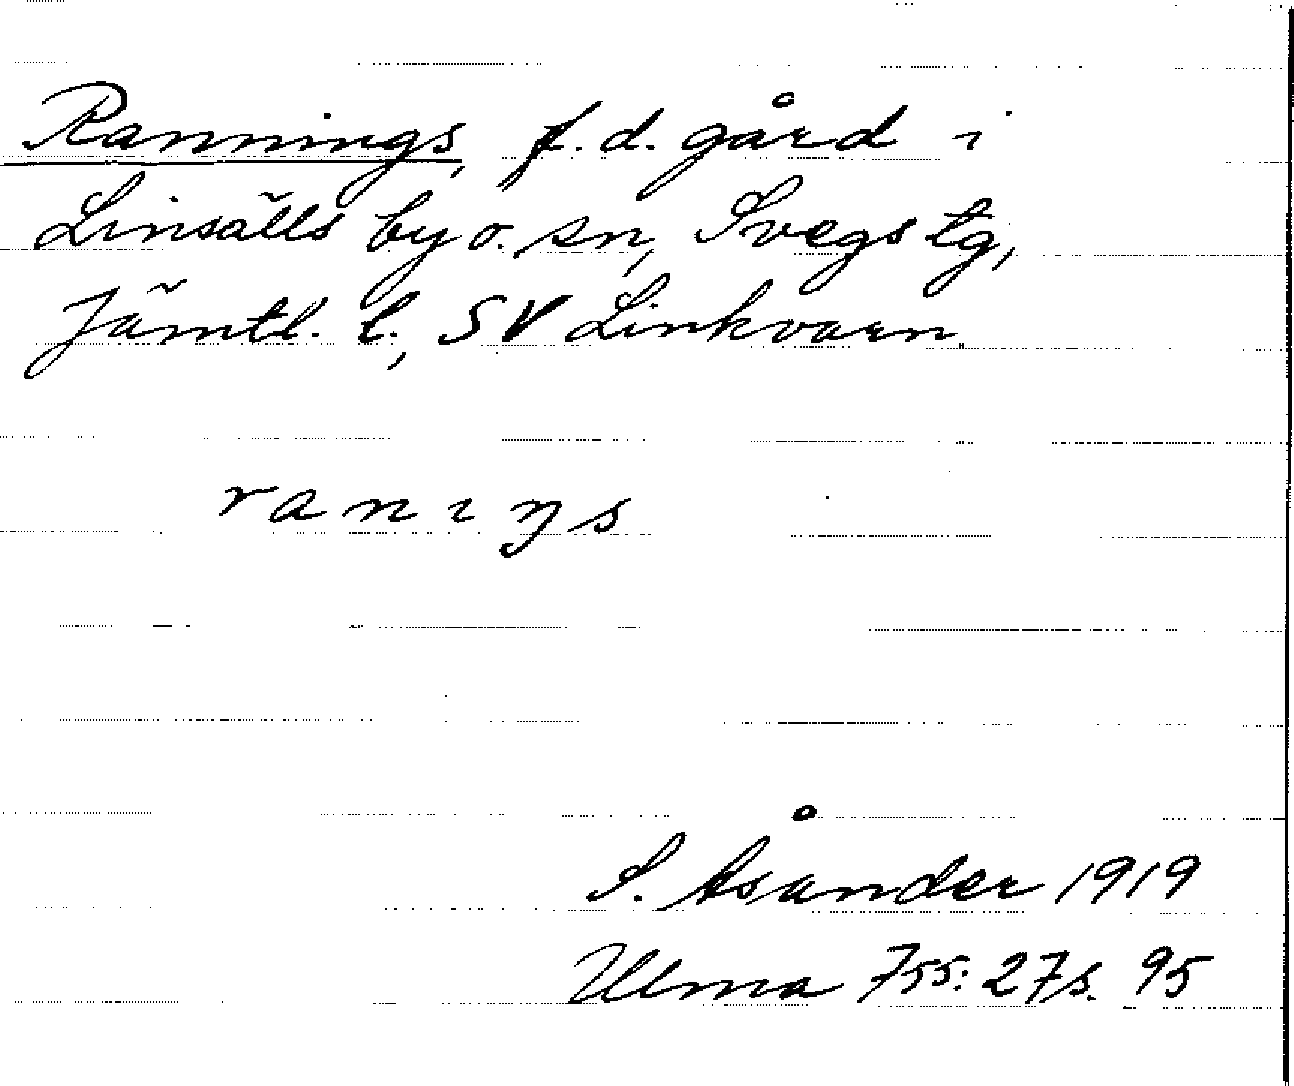 Rannings, f.d. gård i
Linsälls by o. sn, Svegs tg,
Jämtl. l., SV Linkvarn.
ranıŋs
S. Åsander 1919
Ulma 755: 27 s. 95